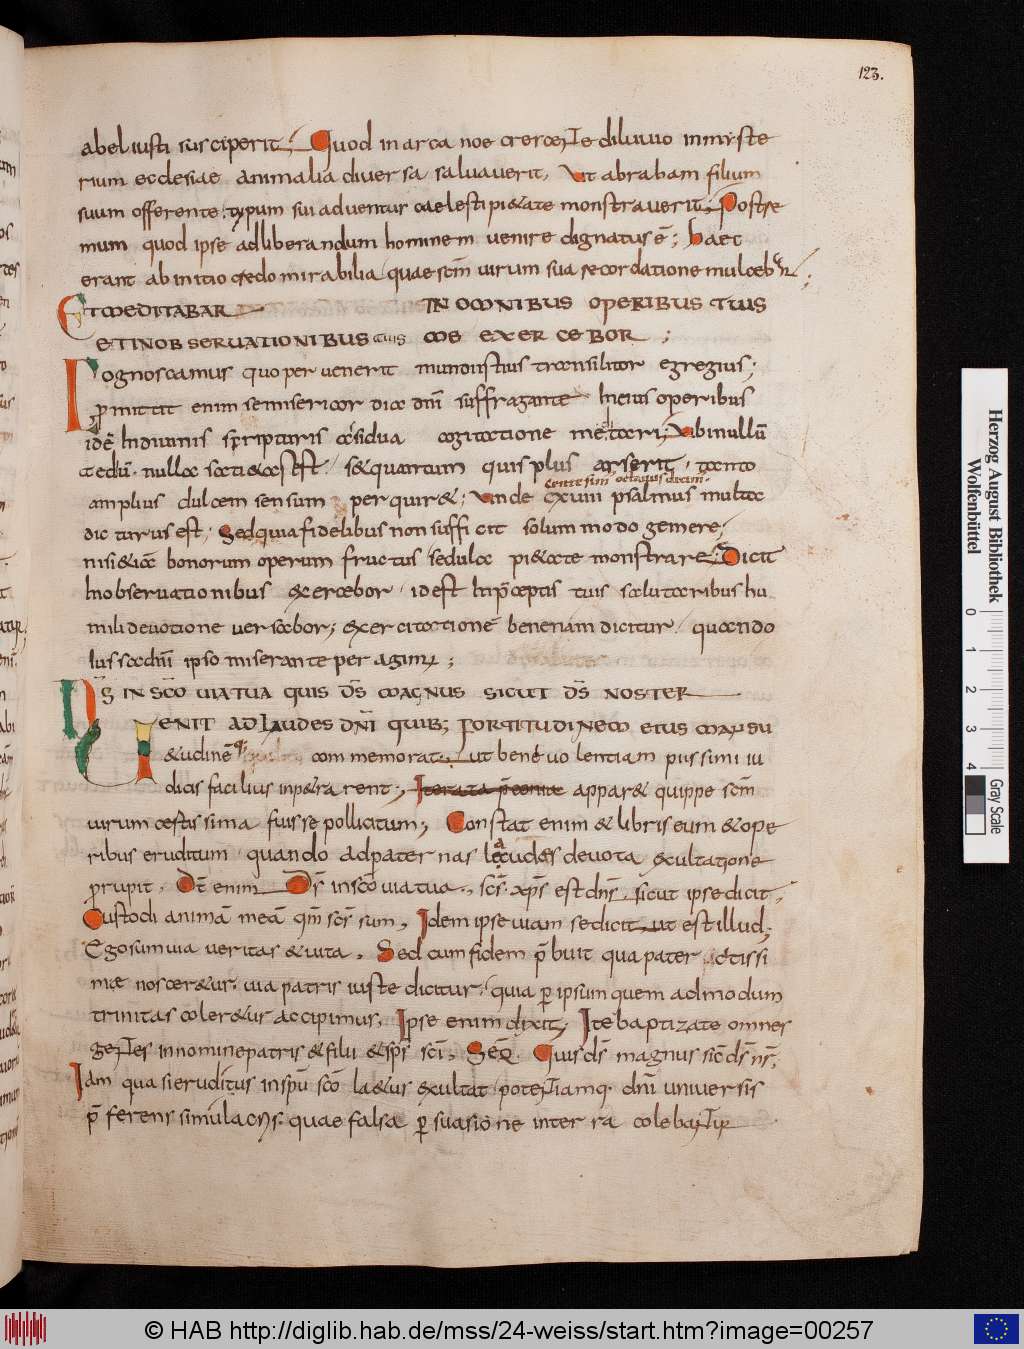 123.
abel iusti susciperit; Quod in arca noe crescente diluuio in myste
rium ecclesiae animalia diuersa saluauerit, Ut abraham filium
suum offerente typum sui aduentus caelesti pi&ate monstrauerit; Postre
mum quod ipse ad liberandum hominem uenire dignatus ē; haec
erant ab initio credo mirabilia quae scm̄ uirum sua recordatione mulceb
ET MEDITABAR IN OMNIBUS OPERIBUS TUIS
ET IN OBSERUATIONIBUS tuis ME EXERCEBOR;
Cognoscamus quo peruenerit mundi istius transilitor egregius;
p̄mittit enim se misericordiae dn̄i suffragante In eius operibus
idē In diuinis scripturis assidua cogitatione meditari; Ubi nullū
tediū nulla satietas est s&quantum quis plus arserit tanto
centesim octauus decim
amplius dulcem sensum perquir&; Unde cxuiii psalmus multa
dicturus est; Sed quia fidelibus non sufficit solummodo gemere;
nisi &iā bonorum operum fructus sedula pi&ate monstrare; Dicit
In obseruationibus exercebor id est In p̄ceptis tuis salutaribus hu
mili deuotione uersabor; exercitationē bene nam dicitur quando
lussadn̄i ipso miserante peragimus;
D̄S IN SC̄O UIA TUA QUIS D̄S MAGNUS SICUT D̄S NOSTER
UENIT AD LAUDES DN̄I QUIB; FORTITUDINEM EIUS MANSU
&udinē commemorat, ut beneuolentiam piissimi iu
dicis facilius inp&rarent; Iterata appar& quippe scm̄
uirum cestissima fuisse pollicitum; Constat enim & libris eum & ope
ribus eruditum quando ad paternas laudes deuota exultatione
prupit. Dt̄ enim D̄s in sc̄o uia tua, scs̄ xp̄s est dn̄s, sicut ipse dicit;
Custodi animā meā qm̄ scs̄ sum, Idem ipse uiam se dicit, ut est illud;
Ego sum uia ueritas & uita. Sed cum fidem p̄buit qua pater
mae noscer&ur, uia patris iuste dicitur, quia p ipsum quem admodum
trinitas coler&ur accipimus, Ipse enim dixit, Ite baptizate omnes
gentes in nomine patris & filii & sps̄ scī, Seq̄ Quis d̄s magnus sic̄ d̄s nr̄;
Iam quasi eruditus in spū sc̄o la&us exultat potentiamq. dn̄i uniuersis
p̄ferens simulacris. quae falsa p suasione in terra colebantur
Herzog August Bibliothek
Wolfenbüttel
0
1
2
3
4
Gray Scale
© HAB http://diglib.hab.de/mss/24-weiss/start.htm?image=00257